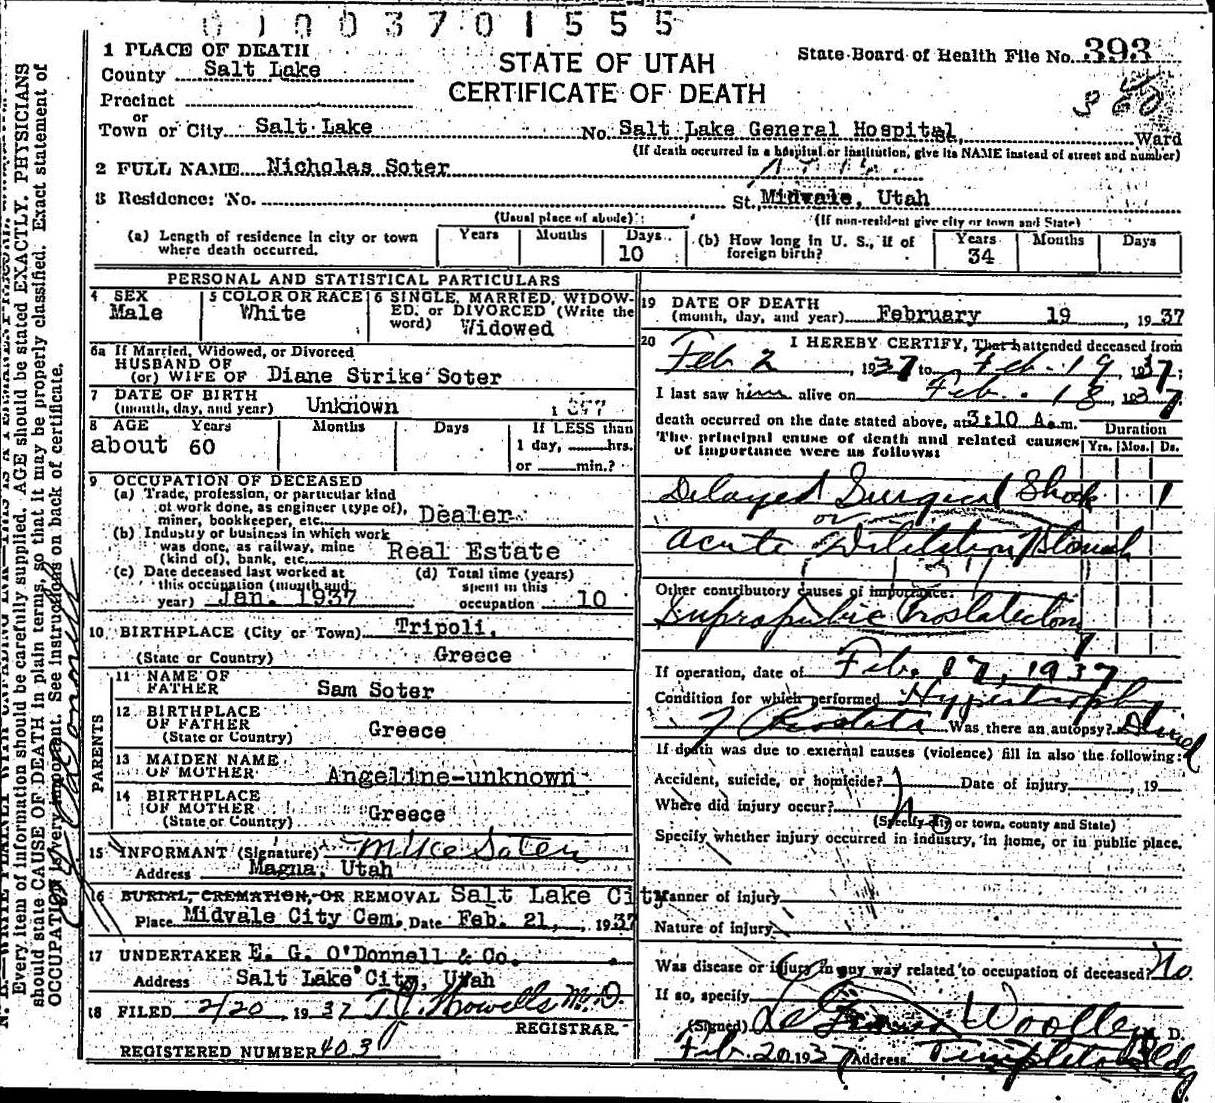 0 1 0 0 3 7 0 1 5 5 5
1 PLACE OF DEATH
County Salt Lake
Precinct
or
Town or City Salt Lake
STATE OF UTAH
CERTIFICATE OF DEATH
State Board of Health File No. 393
No. Salt Lake General Hospital St., Ward
(If death occurred in a hospital or institution, give its NAME instead of street and number)
2 FULL NAME Nicholas Soter
3 Residence: No. St. Midvale, Utah
(Usual place of abode) (If non-resident give city or town and State)
(a) Length of residence in city or town where death occurred. Years Months Days 10
(b) How long in U. S., if of foreign birth? Years 34 Months Days
PERSONAL AND STATISTICAL PARTICULARS
4 SEX
Male
5 COLOR OR RACE
White
6 SINGLE, MARRIED, WIDOWED, or DIVORCED (Write the word) Widowed
6a If Married, Widowed, or Divorced
HUSBAND OF
(or) WIFE OF Diane Strike Soter
7 DATE OF BIRTH
(month, day, and year) Unknown 1877
8 AGE Years Months Days If LESS than
about 60 1 day, hrs.
or min.?
9 OCCUPATION OF DECEASED
(a) Trade, profession, or particular kind
of work done, as engineer (type of),
miner, bookkeeper, etc. Dealer
(b) Industry or business in which work
was done, as railway, mine
(kind of), bank, etc. Real Estate
(c) Date deceased last worked at
this occupation (month and
year) Jan. 1937
(d) Total time (years)
spent in this
occupation 10
10 BIRTHPLACE (City or Town) Tripoli,
(State or Country) Greece
PARENTS
11 NAME OF
FATHER Sam Soter
12 BIRTHPLACE
OF FATHER
(State or Country) Greece
13 MAIDEN NAME
OF MOTHER Angeline-unknown
14 BIRTHPLACE
OF MOTHER
(State or Country) Greece
15 INFORMANT (Signature) Mike Soter
Address Magna, Utah
16 BURIAL, CREMATION, OR REMOVAL Salt Lake City
Place Midvale City Cem. Date Feb. 21, 1937
17 UNDERTAKER E. G. O'Donnell & Co.
Address Salt Lake City, Utah
18 FILED 2/20, 1937 T. J. Howells M.D.
REGISTRAR
REGISTERED NUMBER 403
19 DATE OF DEATH
(month, day, and year) February 19, 1937
20 I HEREBY CERTIFY, That I attended deceased from
Feb 2, 1937 to Feb. 19, 1937;
I last saw him alive on Feb. 18, 1937
death occurred on the date stated above, at 3:10 A.m.
The principal cause of death and related causes
of importance were as follows:
Duration
Yrs. Mos. Ds.
Delayed Surgical Shock 1
or
Acute Dilitation Stomach
Other contributory causes of importance:
Suprapubic Prostatectomy
If operation, date of Feb. 17, 1937
Condition for which performed Hypertrophy
of Prostate Was there an autopsy? Denied
If death was due to external causes (violence) fill in also the following:
Accident, suicide, or homicide? Date of injury, 19
Where did injury occur?
(Specify city or town, county and State)
Specify whether injury occurred in industry, in home, or in public place.
Manner of injury
Nature of injury
Was disease or injury in any way related to occupation of deceased? No
If so, specify
(Signed) Le Grand Woolley M. D.
Feb. 20, 1937 Address Templeton Bldg.
Every item of information should be carefully supplied. AGE should be stated EXACTLY. PHYSICIANS
should state CAUSE OF DEATH in plain terms, so that it may be properly classified. Exact statement of
OCCUPATION is very important. See instructions on back of certificate.